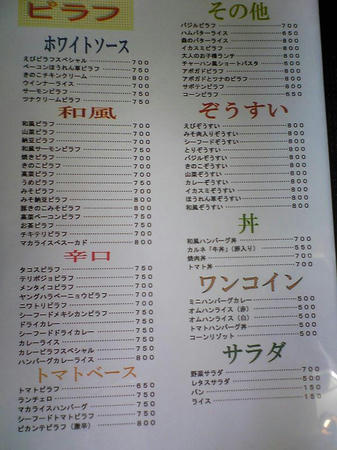 ピラフ
ホワイトソース
えびピラフスペシャル 700
ベーコンほうれん草ピラフ 700
きのこチキンクリーム 800
ウインナーライス 700
サーモンピラフ 750
ツナクリームピラフ 700
和風
和風ピラフ 700
山菜ピラフ 700
納豆ピラフ 700
和風サーモンピラフ 800
焼きピラフ 700
きのこピラフ 700
高菜ピラフ 700
うめピラフ 750
みそピラフ 700
みそ納豆ピラフ 800
豚きのこみそピラフ 800
高菜ベーコンピラフ 750
お茶ピラフ 750
チキテリピラフ 700
マカライスペスーカド 800
辛口
タコスピラフ 750
テリポジョピラフ 750
メンタイコピラフ 750
ヤングハラペーニョウピラフ 700
ニワトリピラフ 700
シーフードメキシカンピラフ 750
ドライカレー 700
シーフードドライカレー 800
カレーライス 750
カレーピラフスペシャル 750
ハンバーグカレーライス 800
トマトベース
トマトピラフ 650
ランチェロ 750
マカライスハンバーグ 750
シーフードトマトピラフ 750
ピカンテピラフ（激辛） 800
その他
バジルピラフ 700
ハムバターライス 600
森のバターライス 800
イカスミピラフ 800
大人のお子様ランチ 800
チャーハン風ショートパスタ 500
アボガドピラフ 800
アボガドとツナのピラフ 800
サボテンピラフ 800
コーンピラフ 550
ぞうすい
えびぞうすい 500
みそ肉入りぞうすい 500
シーフードぞうすい 500
とりぞうすい 500
バジルぞうすい 500
きのこぞうすい 500
山菜ぞうすい 500
カレーぞうすい 500
イカスミぞうすい 500
ほうれん草ぞうすい 500
和風ぞうすい 500
丼
和風ハンバーグ丼 800
カルネ「牛丼」（卵入り） 550
焼肉丼 700
トマト丼 700
ワンコイン
ミニハンバーグカレー 500
オムハンライス（赤） 500
オムハンライス（白） 500
トマトハンバーグ丼 500
コーンリゾット 500
サラダ
野菜サラダ 700
レタスサラダ 500
パン 150
ライス 150